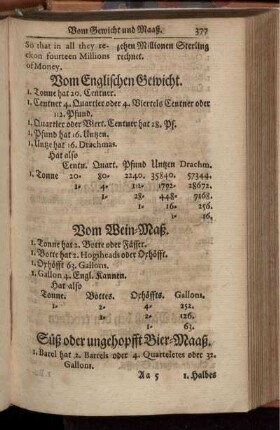 Vom Gewicht und Maaß. 377
So that in all they re-
ckon fourteen Millions
of Money.
4zehen Millionen Sterling
rechnet.
Vom Englischen Gewicht.
1. Tonne hat 20. Centner.
1. Centner 4. Quartler oder 4. Viertels Centner oder
112. Pfund.
1. Quartler oder Viert. Centner hat 28. Pf.
1. Pfund hat 16. Untzen.
1. Untze hat 16. Drachmas.
Hat also
Centn. Quart. Pfund Untzen Drachm.
1. Tonne 20- 80- 2240. 35840. 57344.
1- 4- 112- 1792- 28672.
1- 28- 448- 9168.
1- 16- 256.
1- 16.
Vom Wein-Maß.
1. Tonne hat 2. Botte oder Fässer.
1. Botte hat 2. Hogsheads oder Oxhöfft.
1. Oxhöfft 63. Gallons.
1. Gallon 4. Engl. Kannen.
Hat also
Tonne. Bottes. Oxhöffts. Gallons.
1- 2- 4- 252.
1- 2- 126.
1- 63.
Süß oder ungehopfft Bier-Maaß.
1. Barel hat 2. Bartels oder 4. Quarteletes oder 32.
Gallons.
Aa 5 1. Halbes